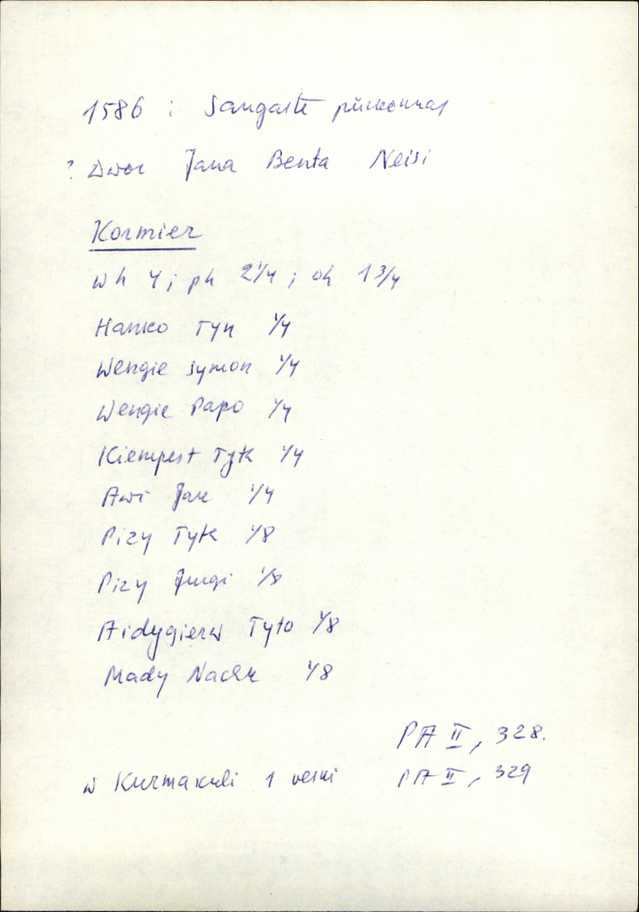 1586 : Sangaste piirkonnas
? Dwor Jana Benta Neisi
Kormier
wh 4 ; ph 2 1/4 ; oh 1 3/4
Hanko Tyn 1/4
Wengie Symon 1/4
Wengie Papo 1/4
Kiempest Tyk 1/4
Awi Jan 1/4
Pizy Tyk 1/8
Pizy Jurgi 1/8
Aidygierw Tyto 1/8
Mady 1/8
PA II, 328.
w Kurmakuli 1 veski PA II, 329